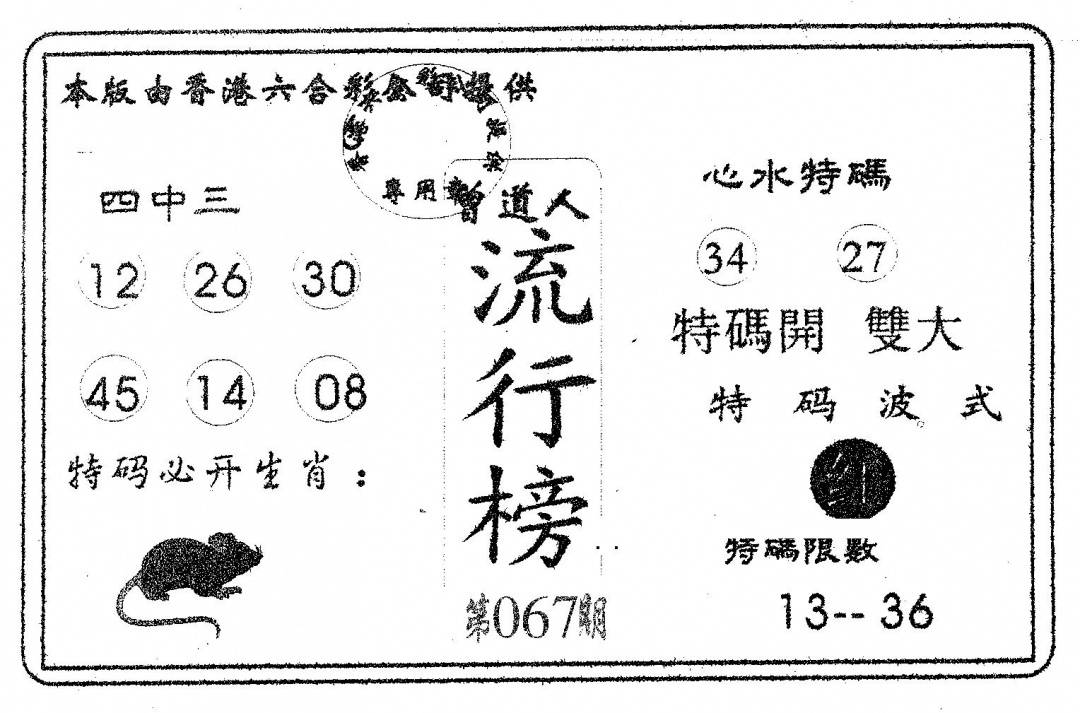 本版由香港六合彩公司提供
專用章
四中三
12 26 30
45 14 08
特码必开生肖：
曾道人
流行榜
第067期
心水特碼
34 27
特碼開 雙大
特码波式
红
特碼限数
13-- 36